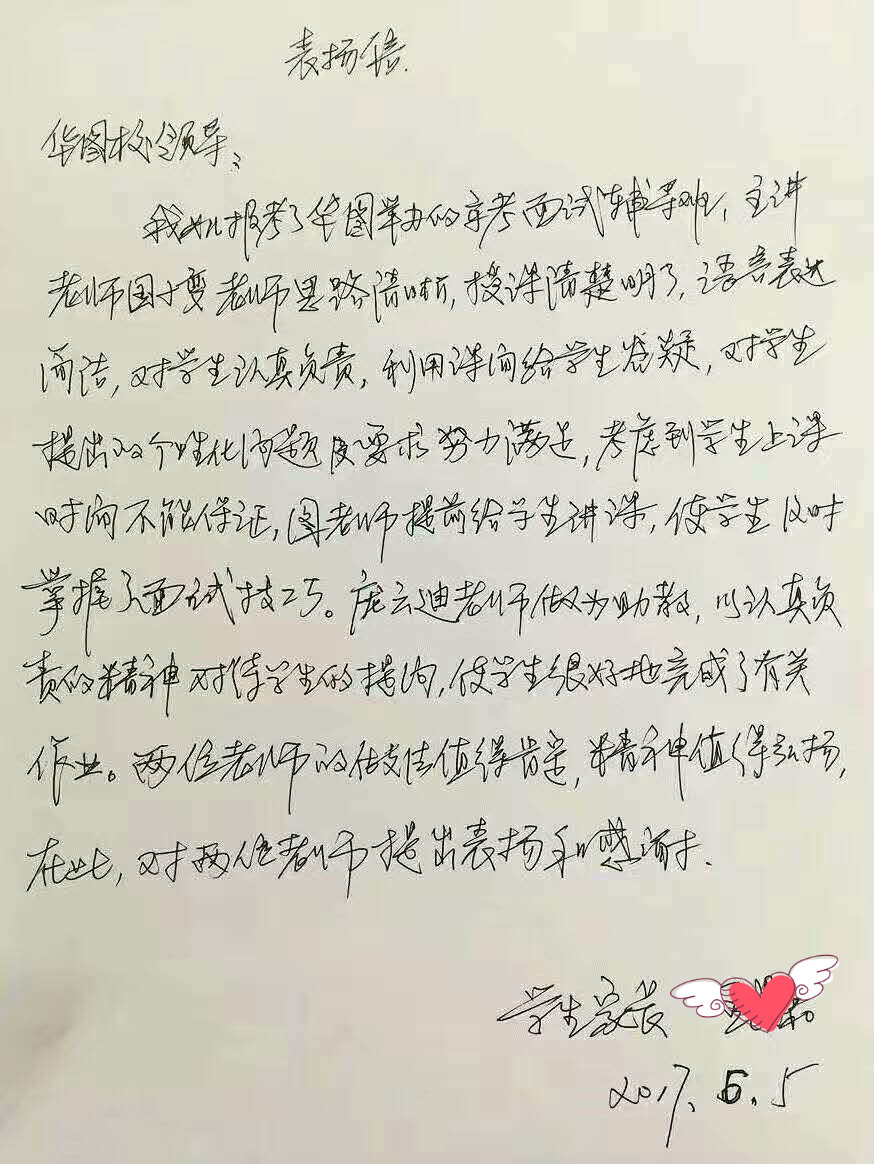 表扬信.
华图校领导:
我女儿报考了华图举办的京考面试辅导班，主讲
老师国子变老师思路清晰，授课清楚明了，语言表达
简洁，对学生认真负责，利用课间给学生答疑，对学生
提出的个性化问题及要求努力满足，考虑到学生上课
时间不能保证，国老师提前给学生讲课，使学生及时
掌握了面试技巧。庞云迪老师做为助教，以认真负
责的精神对待学生的提问，使学生很好地完成了有关
作业。两位老师的做法值得肯定，精神值得弘扬，
在此，对两位老师提出表扬和感谢.
学生家长
2017.6.5